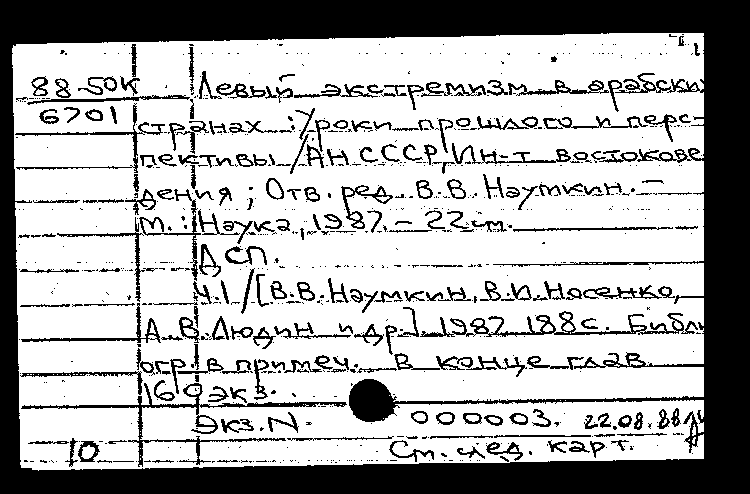 88-50К Левый экстремизм в арабских
6701 странах : Уроки прошлого и перс-
пективы / АН СССР, Ин-т востокове
дения ; Отв. ред. В.В. Наумкин. —
М. : Наука, 1987. — 22 см.
ДСП.
Ч.1 / [В.В. Наумкин, В.И. Носенко,
А.В. Людин и др.]. 1987. 188 с. Библи
огр. в примеч. в конце глав.
160 экз.
Экз. N. 000003. 22.08.88
10 См. след. карт.